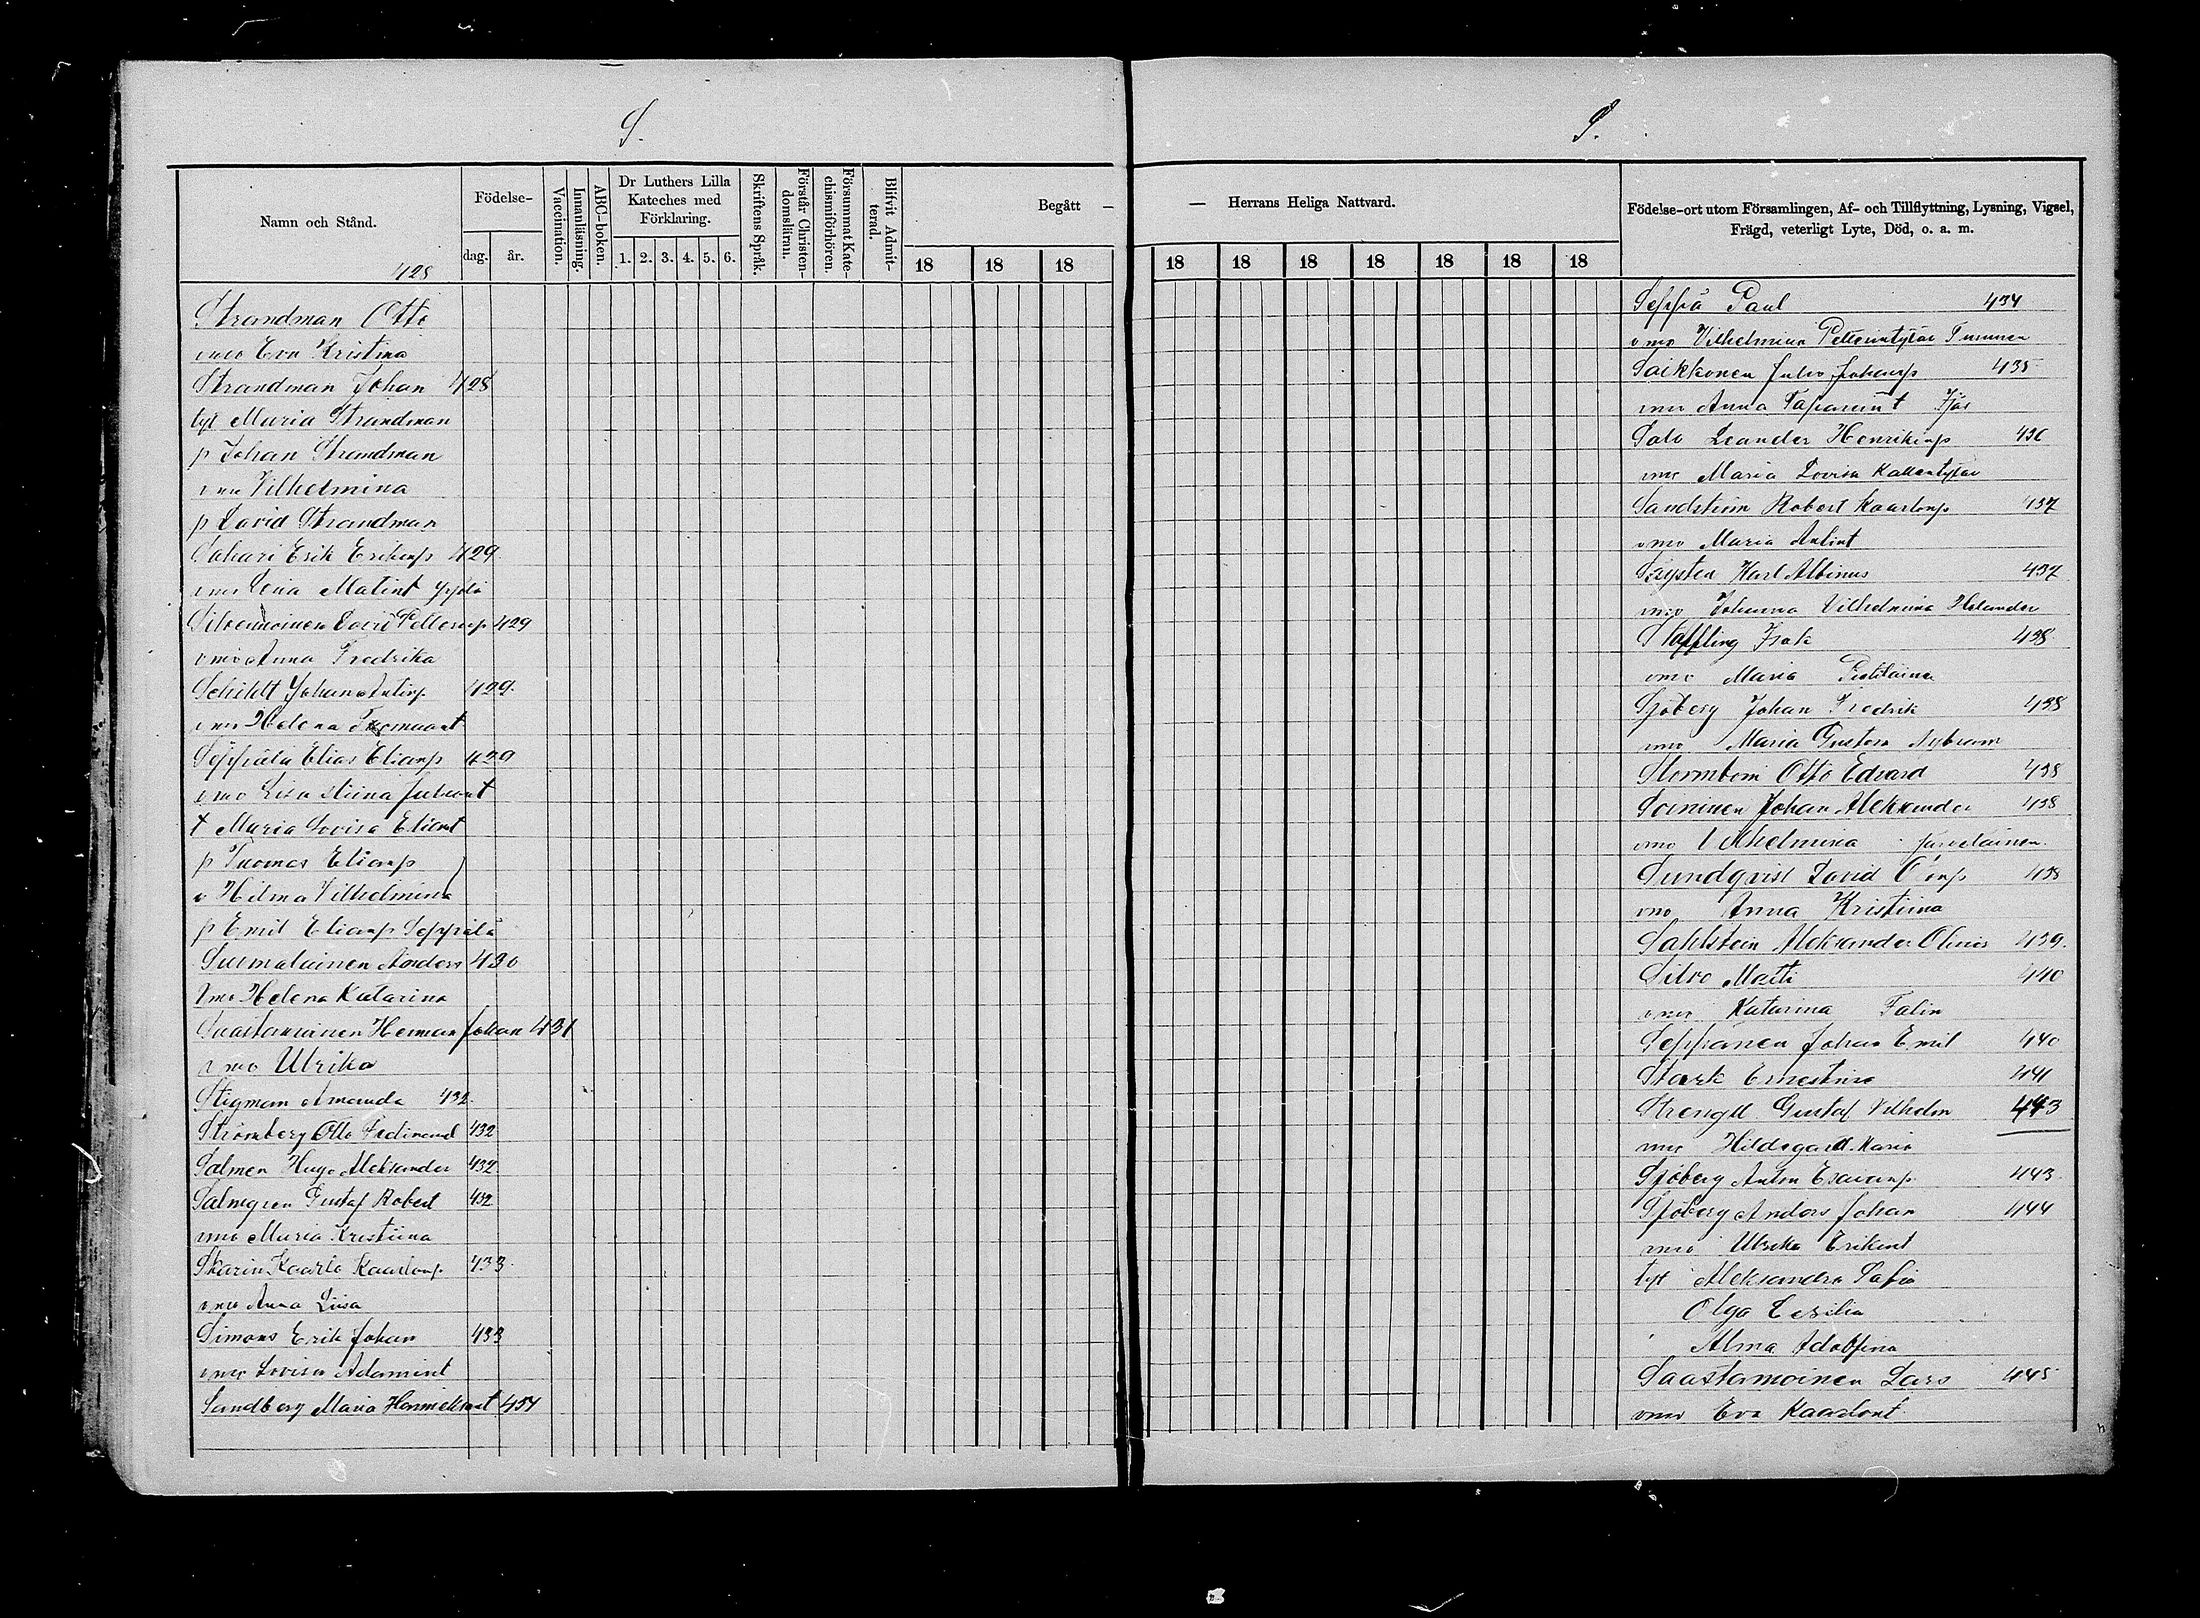 S.
Namn och Stånd.
Födelse-
dag.
år.
Vaccination.
Innanläsning.
ABC-boken.
Dr Luthers Lilla
Kateches med
Förklaring.
1. 2. 3. 4. 5. 6.
Skriftens Språk.
Förstår Christen-
domsläran.
Försummat Kate-
chismiförhören.
Blifvit Admit-
terad.
Begått —
18 18 18
428
Strandman Otto
vmo Eva Kristina
Strandman Johan 428
tyt Maria Strandman
p Johan Strandman
vmo Vilhelmina
p David Strandman
Sahari Erik Erikinp 429
vmo Lena Matint
Silvennoinen Petterinp 429
vmo Anna Fredrika
Schildt Johan Antinp. 429.
vmo Helena Tuomaant
Seppälä Elias Elianp 429
vmo Lisa Stiina Juhont
t Maria Lovisa Eliant
p Tuomas Elianp
v Hilma Vilhelmina
p Emil Elianp Seppälä
Surmalainen Anders 430
Vmo Helena Katarina
Saastamoinen Herman Johan 431
vmo Ulrika
Stigman Amanda 432.
Strömberg Otto Fedinand 432
Salmen Hugo Aleksander 432
Salmgren Gustaf Robert 432
vmo Maria Kristiina
Skarin Kaarlo Kaarlonp 433.
vmo Anna Liisa
Simons Erik Johan 433
vmo Lovisa Adamint
Sandberg Maria 434
S.
— Herrans Heliga Nattvard.
18 18 18 18 18 18 18
Födelse-ort utom Församlingen, Af- och Tillflyttning, Lysning, Vigsel,
Frägd, veterligt Lyte, Död, o. a. m.
Seppä Paul 434
vmo Vilhelmina Petterintytär
Saikkonen Juho Juhanp 435
vmo Anna Tapanint
Salo Leander Henrikinp 436
vmo Maria Lovisa Kallentytär
Sandström Robert Kaarlonp 437
vmo Maria Antint
Systen Karl Albinus 437
vmo Johanna Vilhelmina Helander
Staffling Isak 438
vmo Maria
Sjöberg Johan Fredrik 438
vmo Maria Gustava
Stormbom Otto Edvard 438
Soininen Johan Aleksander 438
vmo Vilhelmina Järveläinen.
Sundqvist David O'inp 438
vmo Anna Kristiina
Sahlstein Aleksander 439.
Silvo Matti 440
vmo Katarina Falin
Seppänen Johan Emil 440
Stark Ernestina 441
Strengell Gustaf Vilhelm 443
vmo Hildegard Maria
Sjöberg Anton Esaianp. 443.
Sjöberg Anders Johan 444
vmo Ulrika Erikint
tyt Aleksandra Safia
Olga Cesilia
Alma Adolfina
Saastamoinen Lars 445
vmo Eva Kaarlont